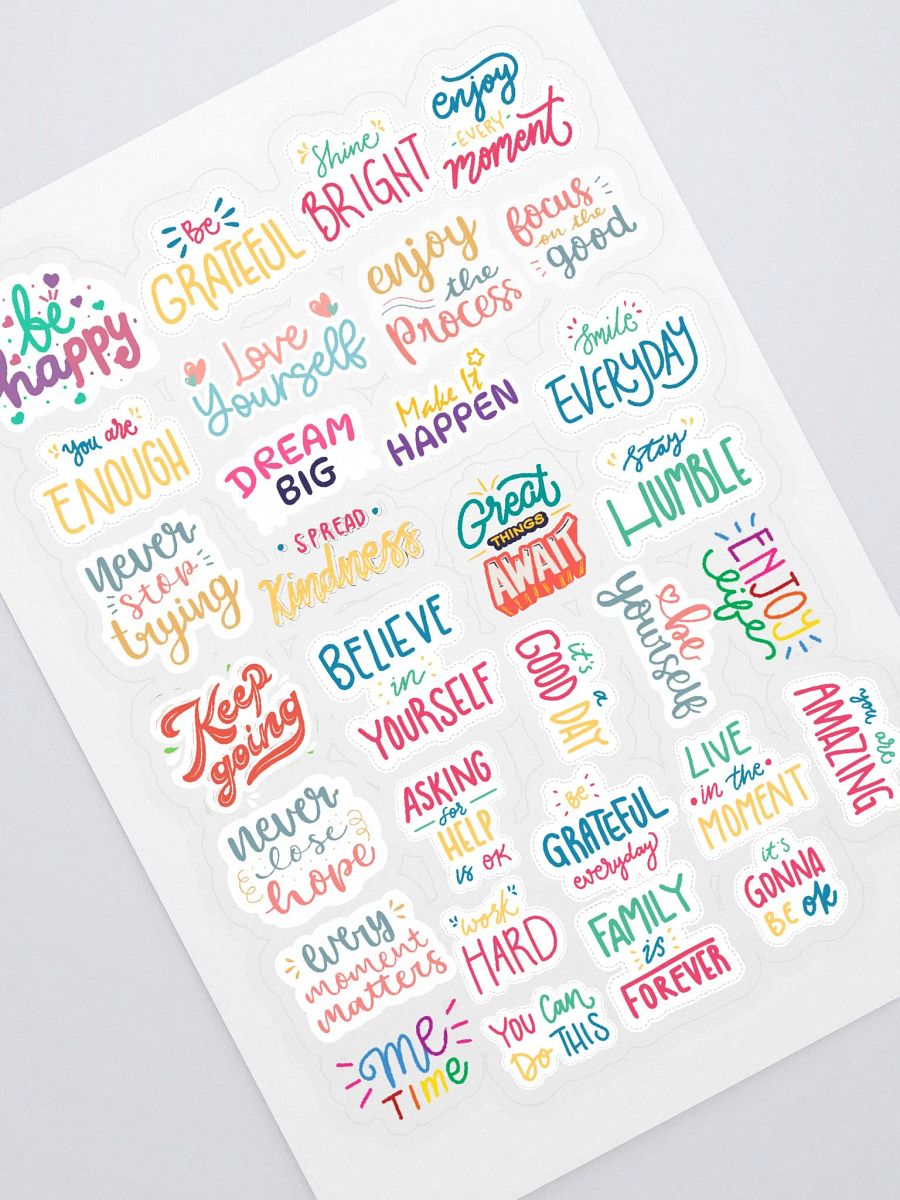 enjoy
-EVERY-
moment
Shine
BRIGHT
Be
GRATEFUL
be
happy
focus
on the
good
enjoy
the
process
Love
Yourself
Smile
EVERYDAY
Make It
HAPPEN
DREAM
BIG
you are
ENOUGH
Stay
HUMBLE
Great
THINGS
AWAIT
SPREAD
Kindness
never
stop
trying
ENJOY
life
be
yourself
it's a
GOOD DAY
BELIEVE
in
YOURSELF
Keep
going
you are
AMAZING
LIVE
in the
MOMENT
Be
GRATEFUL
everyday
ASKING
for
HELP
is OK
never
lose
hope
it's
GONNA
BE OK
FAMILY
is
FOREVER
"work"
HARD
every
moment
matters
YOU Can
Do THIS
me
TIMe